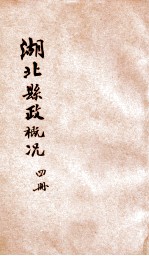 湖北縣政概况 四冊